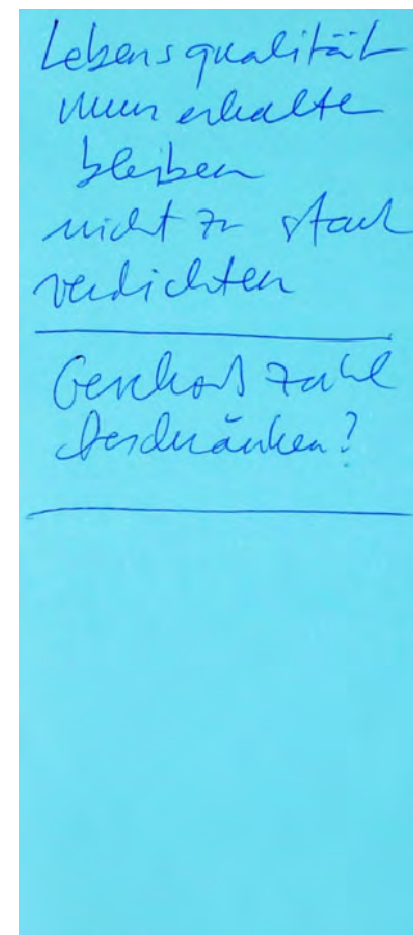 Lebensqualität
muss erhalte
bleiben
nicht zu stark
verdichten
Geschoß zahl
beschränken?